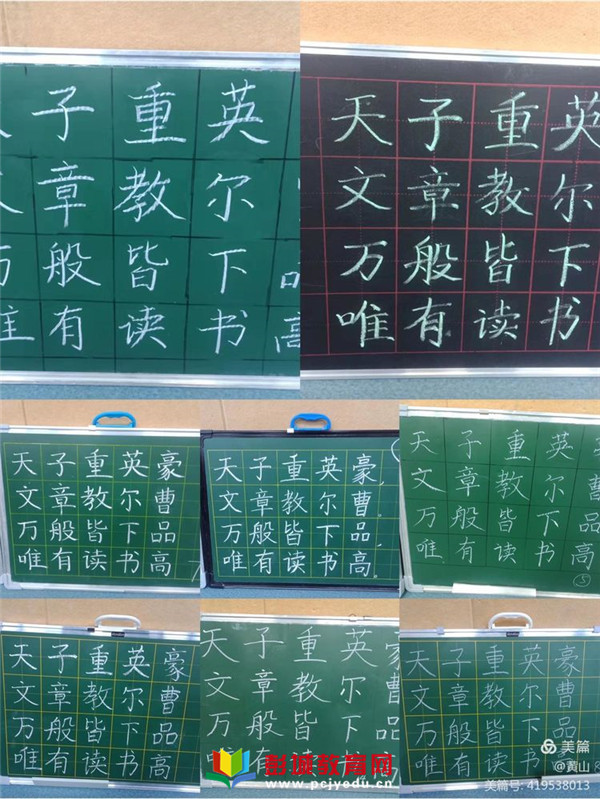 子重英
章教尔
万般皆下
有读书高
天子重英
文章教尔
万般皆下
唯有读书
天子重英豪
文章教尔曹
万般皆下品
唯有读书高
天子重英豪
文章教尔曹
万般皆下品
唯有读书高
天子重英
文章教尔曹
万般皆下品
唯有读书高
⑤
天子重英豪
文章教尔曹
万般皆下品
唯有读书高
天子重英
文章教尔曹
万般皆下品
天子重英豪
文章教尔曹
万般皆下品
唯有读书
彭诚教育网
www.pcjyedu.cn
美篇
@黄山
美篇号: 419538013